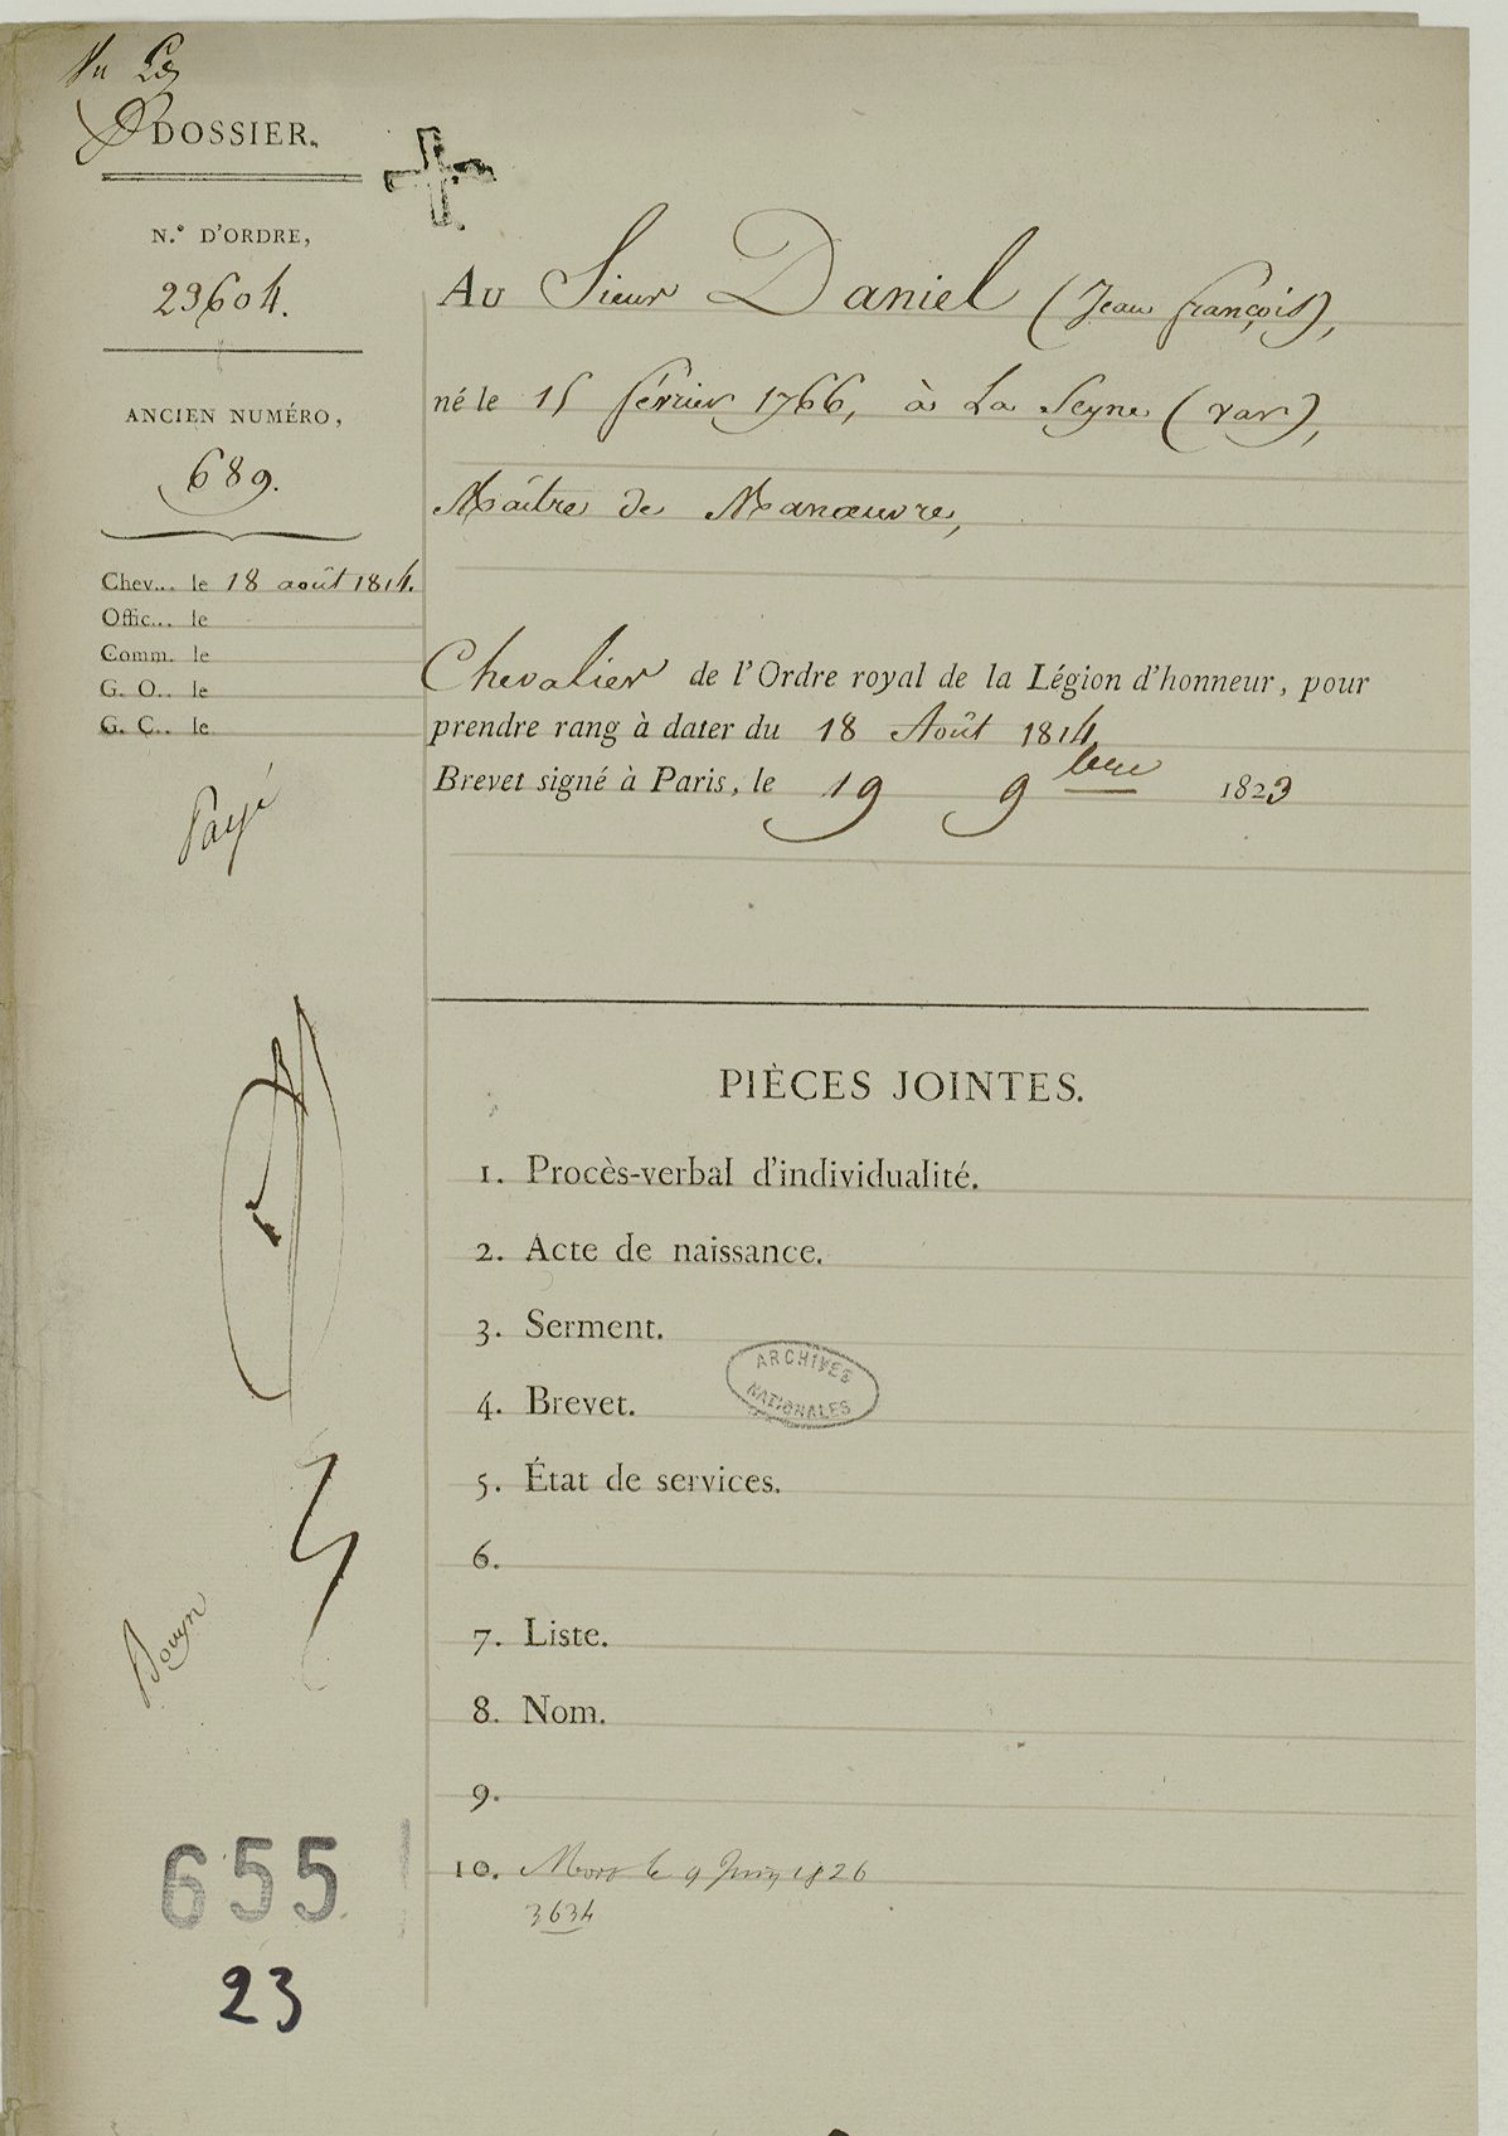 Vu
DOSSIER.
N.° D'ORDRE,
23604.
ANCIEN NUMÉRO,
689.
Chev... le 18 août 1814.
Offic... le
Comm. le
G. O.. le
G. C.. le
Payé
655
23
Au Sieur Daniel (Jean françois),
né le 15 février 1766, à La Seyne (var),
Maître de Manœuvre,
Chevalier de l'Ordre royal de la Légion d'honneur, pour
prendre rang à dater du 18 Août 1814.
Brevet signé à Paris, le 19 9bre 1823
PIÈCES JOINTES.
1. Procès-verbal d'individualité.
2. Acte de naissance.
3. Serment.
ARCHIVES
NATIONALES
4. Brevet.
5. État de services.
6.
7. Liste.
8. Nom.
9.
10. Mort le 9 Juin 1826
3634